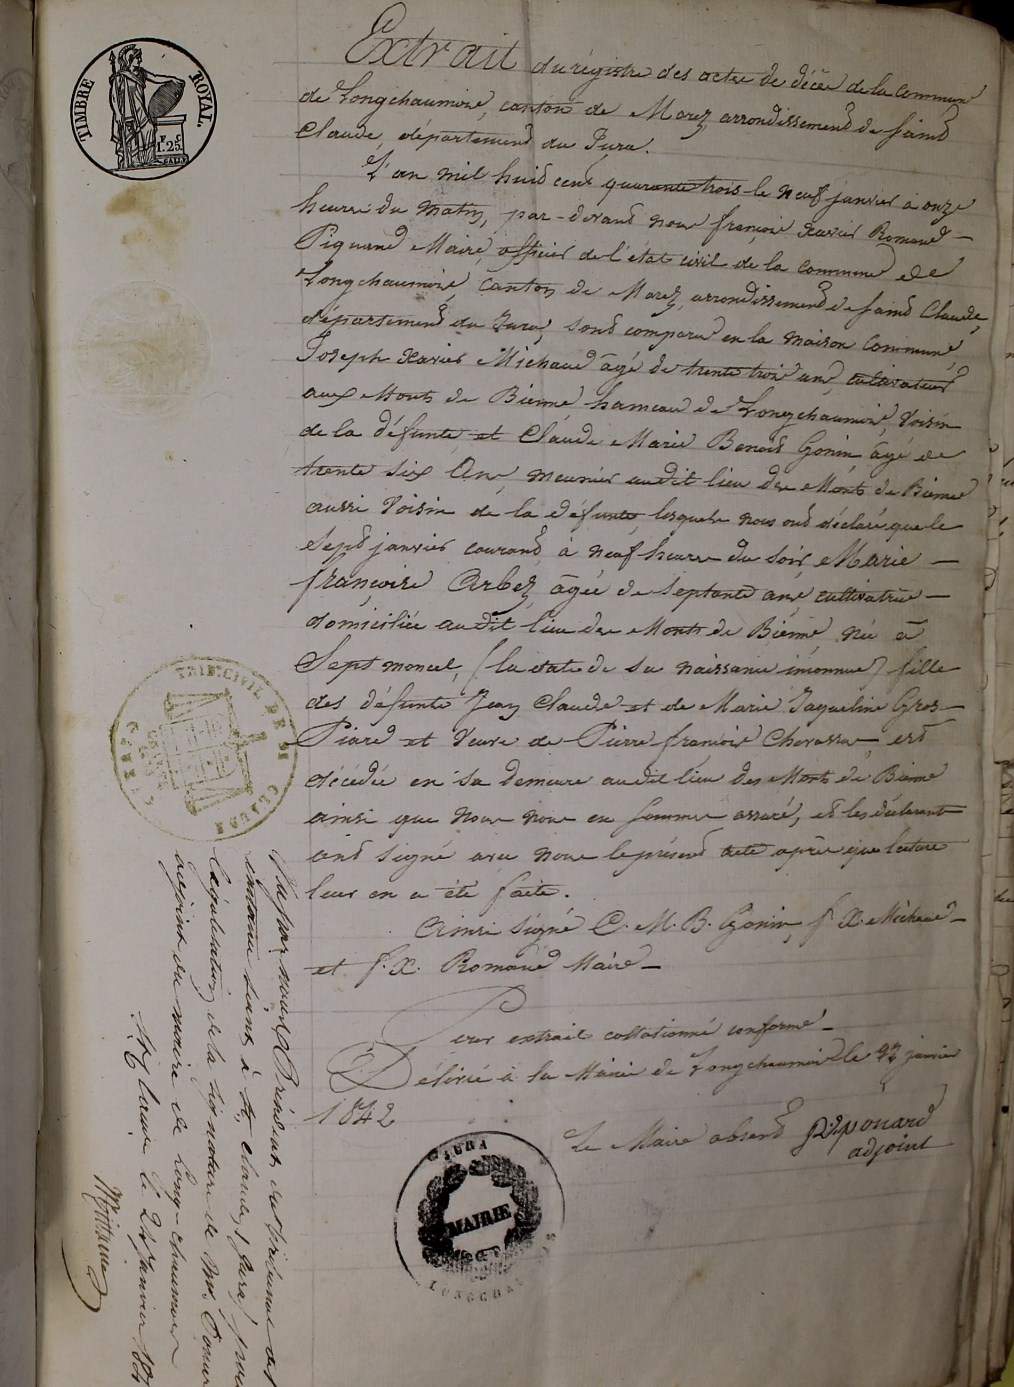 TIMBRE ROYAL.
1.25
Extrait du régistre des actes de décès de la commune
de Longchaumois, canton de Morez, arrondissement de Saint
Claude, département du Jura.
L'an mil huit cent quarante trois le neuf janvier à onze
heures du matin, par-devant nous françois Xavier Romand-
Piquand Maire, officier de l'état civil de la commune de
Longchaumois, canton de Morez, arrondissement de Saint Claude,
département du Jura, sont comparus en la maison commune,
Joseph Xavier Michaud âgé de trente trois ans, cultivateur
aux Monts de Bienne hameau de Longchaumois, voisin
de la défunte et Claude Marie Benoit Gonin âgé de
trente six ans, meunier audit lieu des Monts de Bienne
aussi voisin de la défunte, lesquels nous ont déclaré que le
sept janvier courant, à neuf heures du soir, Marie-
françoise Arbez, âgée de septante ans, cultivatrice-
domiciliée audit lieu des Monts de Bienne, née à
Septmoncel, (la date de sa naissance inconnue) fille
des défunts Jean Claude et de Marie Jaqueline Gros-
Piard et veuve de Pierre françois Chavassu, est
décédée en sa demeure audit lieu des Monts de Bienne
ainsi que nous nous en sommes assuré, et les déclarants
ont signé avec nous le présent acte après que lecture
leur en a été faite.
Ainsi signé C. M. B. Gonin, J. X. Michaud-
et f. X. Romand Maire-
Pour extrait collationné conforme-
Délivré à la Mairie de Longchaumois le 23 janvier
1842
Le Maire absent
adjoint
JURA
MAIRIE
LONGCHAUMOIS
TRIB. CIVIL DE ST CLAUDE
Vu par nous Président du tribunal de
séant à St Claude, (Jura) pour
légalisation de la signature de Mr.
adjoint du maire de Long-chaumois
St Claude le 24 Janvier 184